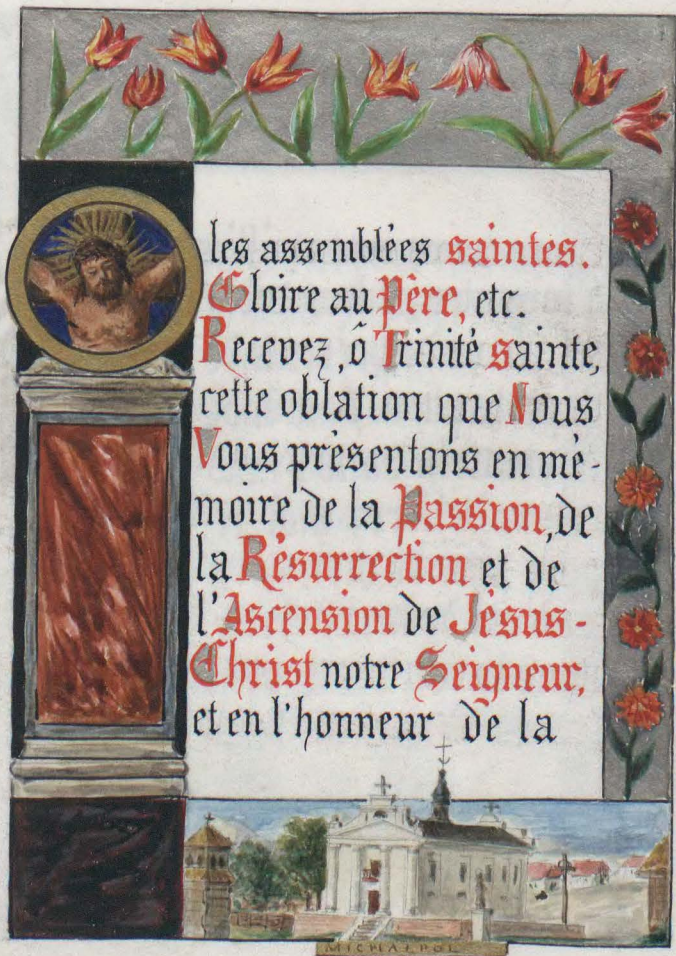 les assemblées saintes.
Gloire au Père, etc.
Recevez, ô Trinité sainte,
cette oblation que Nous
Vous présentons en mé-
moire de la Passion, de
la Résurrection et de
l'Ascension de Jésus-
Christ notre Seigneur,
et en l'honneur de la
MICHALPOL